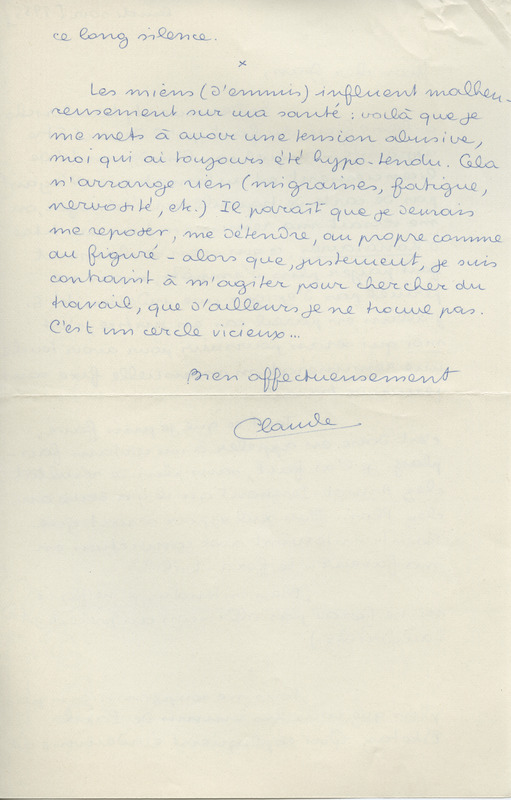 ce long silence.
x
Les miens (d'ennuis) influent malheu-
reusement sur ma santé : voilà que je
me mets à avoir une tension abusive,
moi qui ai toujours été hypo-tendu. Cela
n'arrange rien (migraines, fatigue,
nervosité, etc.) Il paraît que je devrais
me reposer, me détendre, au propre comme
au figuré – alors que, justement, je suis
contraint à m'agiter pour chercher du
travail, que d'ailleurs je ne trouve pas.
C'est un cercle vicieux...
Bien affectueusement
Claude